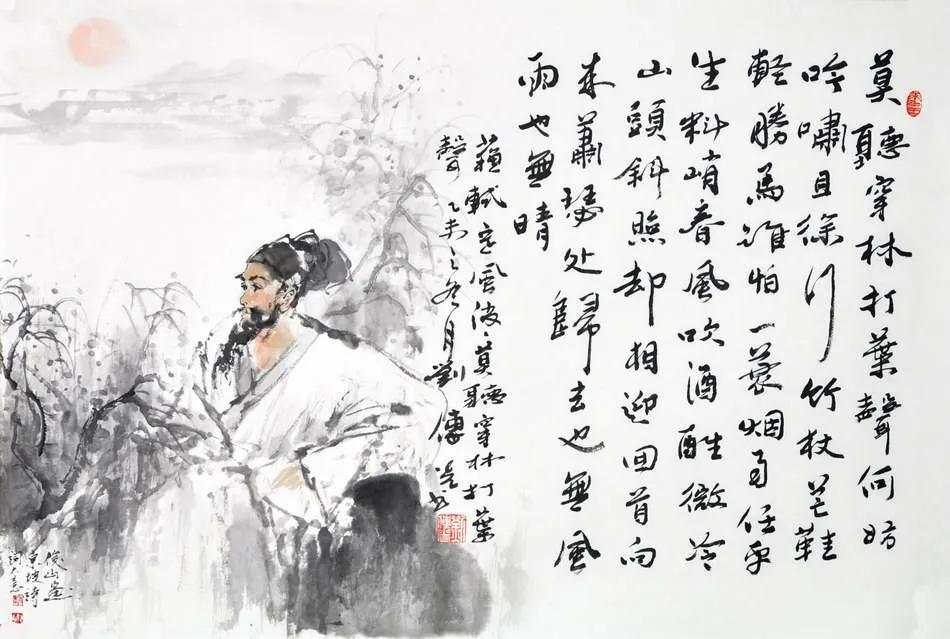 莫聽穿林打葉聲何妨
吟嘯且徐行竹杖芒鞋
輕勝馬誰怕一蓑烟雨任平
生料峭春風吹酒醒微冷
山頭斜照却相迎回首向
来蕭瑟处歸去也無風
雨也無晴
蘇軾定風波莫聽穿林打葉
聲乙未之冬月劉傳
俊山畫
東坡詩
詞大意